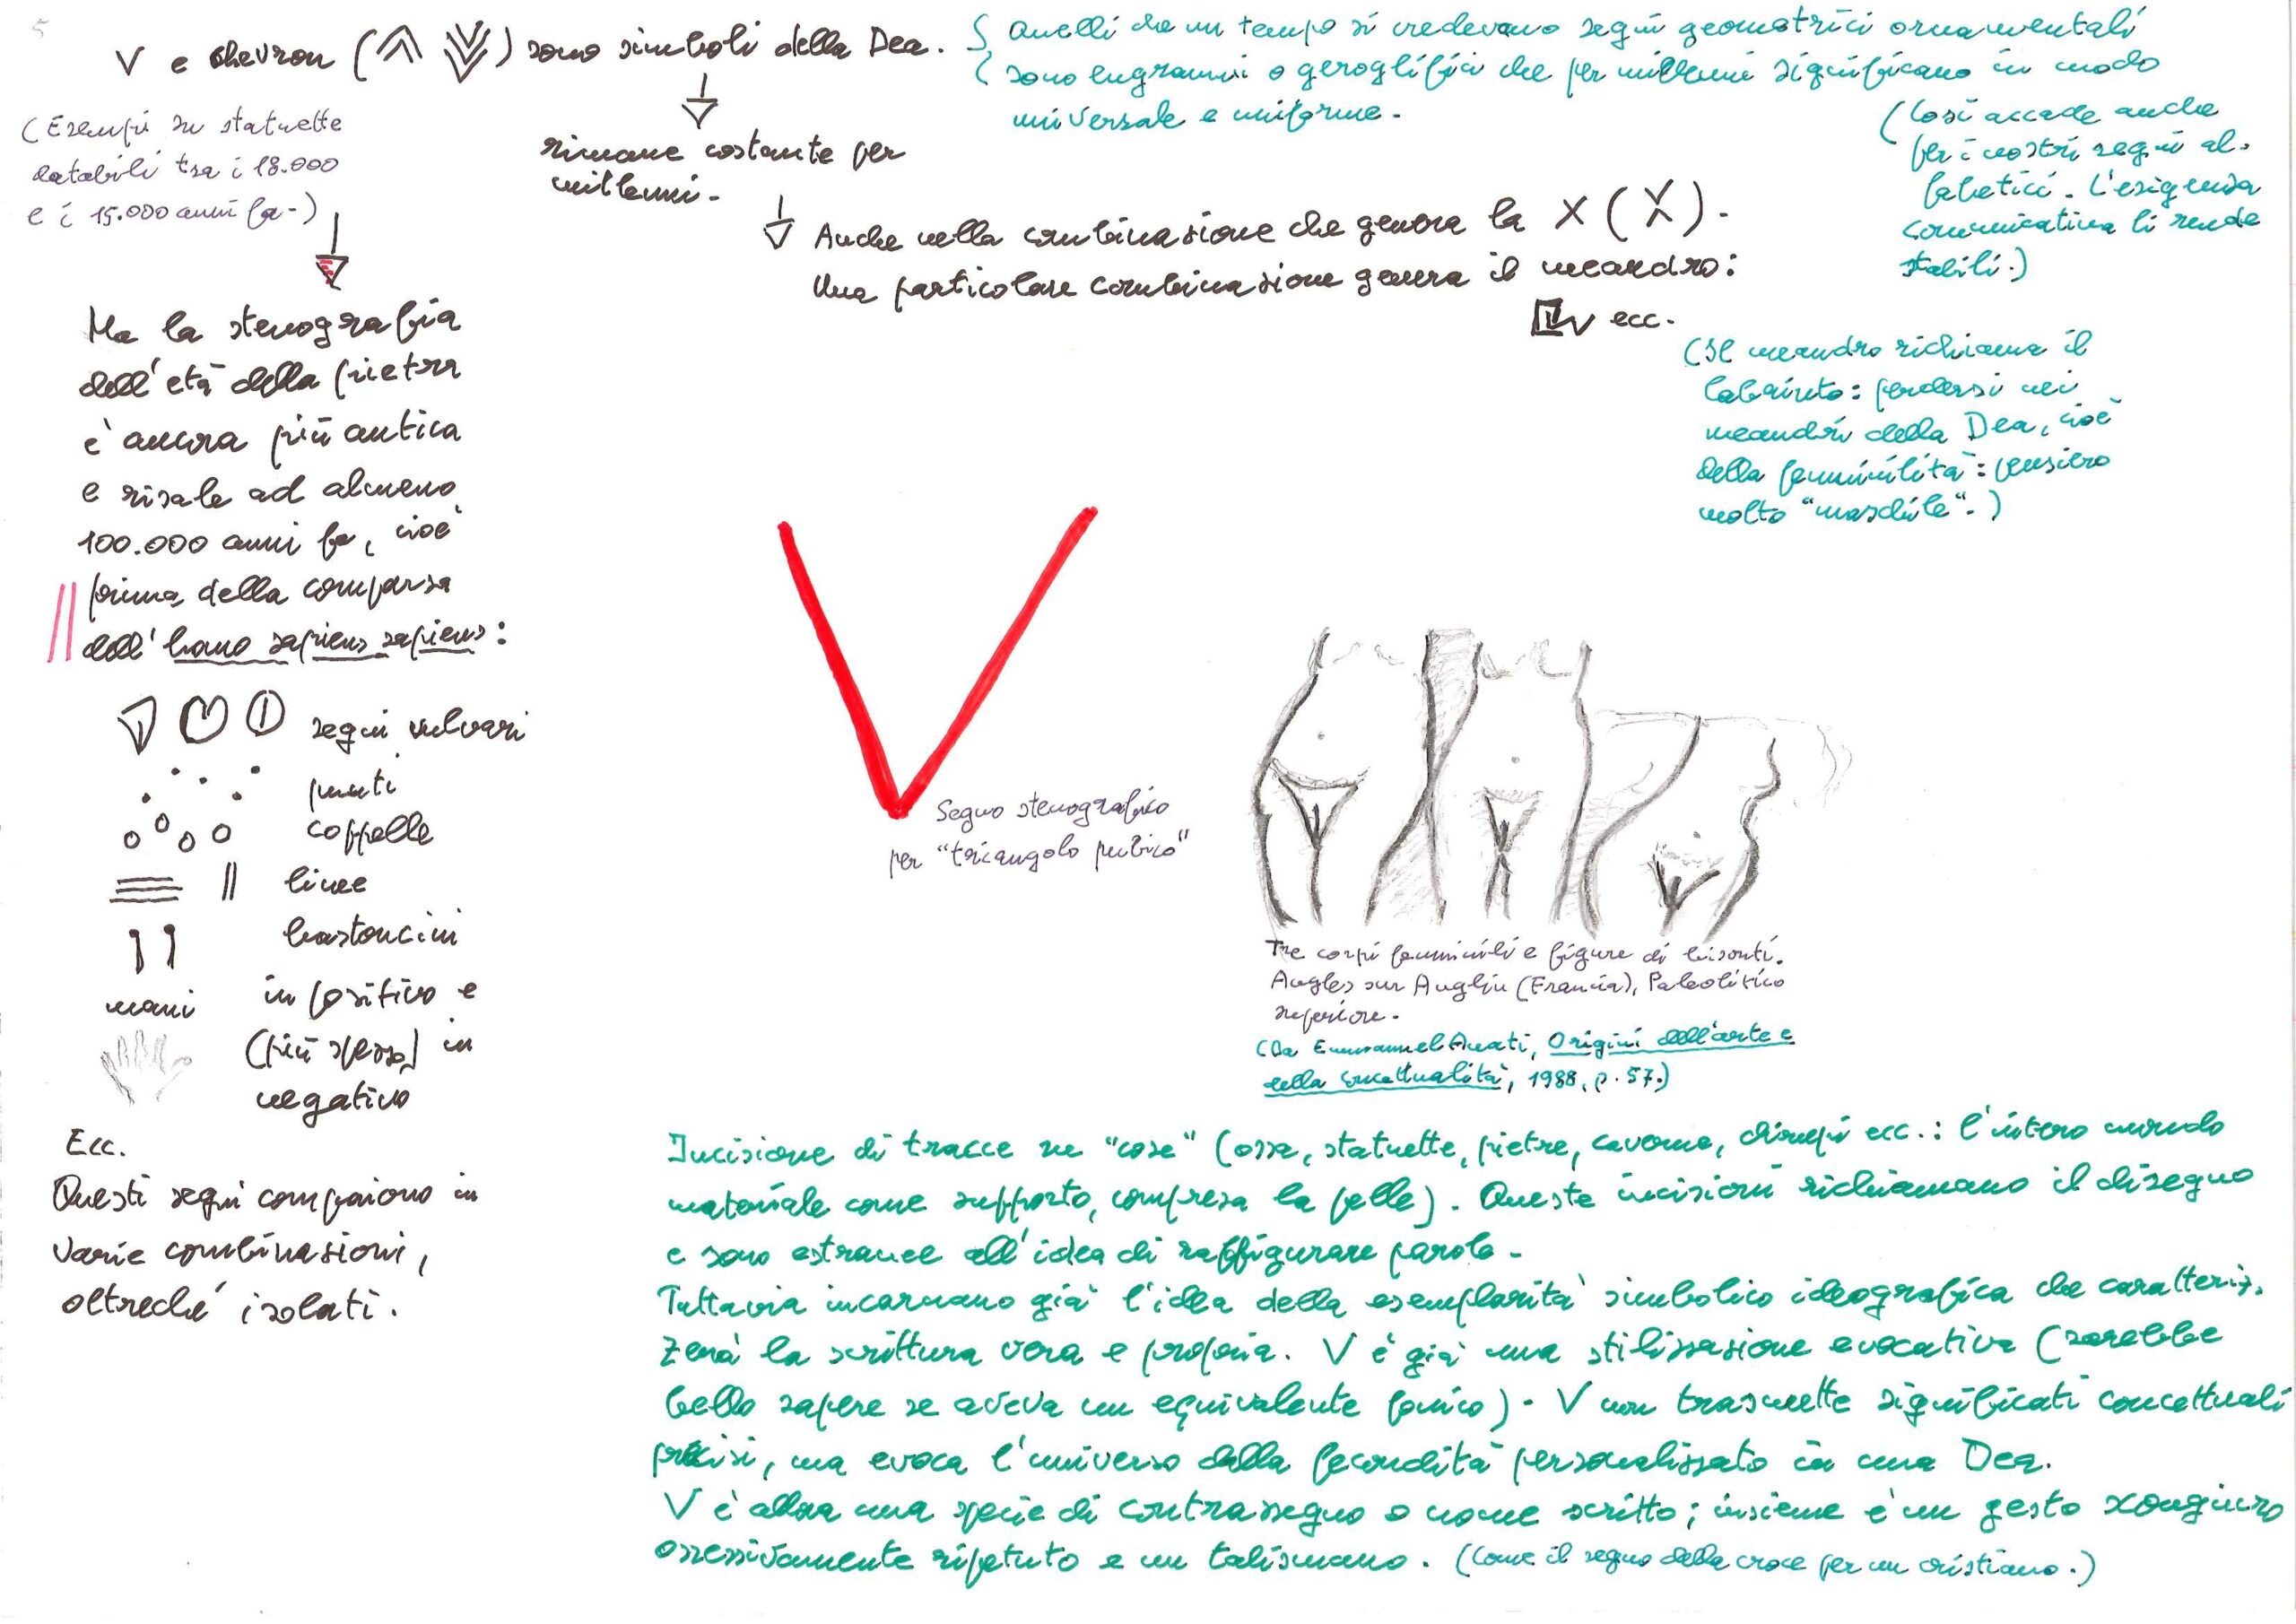 5
V e chevron ( ) sono simboli della Dea.
Quelli che un tempo si credevano segni geometrici ornamentali
sono engrammi o geroglifici che per millenni significano in modo
universale e uniforme.
(Così accade anche
per i nostri segni al-
fabetici. L'esigenza
comunicativa li rende
stabili.)
(Esempi su statuette
databili tra i 18.000
e i 15.000 anni fa.)
rimane costante per
millenni.
Anche nella combinazione che genera la X ( ).
Una particolare combinazione genera il meandro:
ecc.
(Il meandro richiama il
labirinto: perdersi nei
meandri della Dea, cioè
della femminilità: pensiero
molto "maschile".)
Ma la stenografia
dell'età della pietra
è ancora più antica
e risale ad almeno
100.000 anni fa, cioè
prima della comparsa
dell'homo sapiens sapiens:
segni vulvari
punti
coppelle
linee
bastoncini
mani in positivo e
(più spesso) in
negativo
Ecc.
Questi segni compaiono in
varie combinazioni,
oltreché isolati.
Segno stenografico
per "triangolo pubico"
Tre corpi femminili e figure di bisonti.
Angles sur Anglin (Francia), Paleolitico
superiore.
(Da Emmanuel Anati, Origini dell'arte e
della concettualità, 1988, p. 57.)
Incisione di tracce su "cose" (ossa, statuette, pietre, caverne, dirupi ecc.: l'intero mondo
materiale come supporto, compresa la pelle). Queste incisioni richiamano il disegno
e sono estranee all'idea di raffigurare parole.
Tuttavia incarnano già l'idea della esemplarità simbolico ideografica che caratteriz-
zerà la scrittura vera e propria. V è già una stilizzazione evocativa (sarebbe
bello sapere se aveva un equivalente fonico). V non trasmette significati concettuali
precisi, ma evoca l'universo della fecondità personalizzato in una Dea.
V è allora una specie di contrassegno o nome scritto; insieme è un gesto scongiuro
ossessivamente ripetuto e un talismano. (Come il segno della croce per un cristiano.)